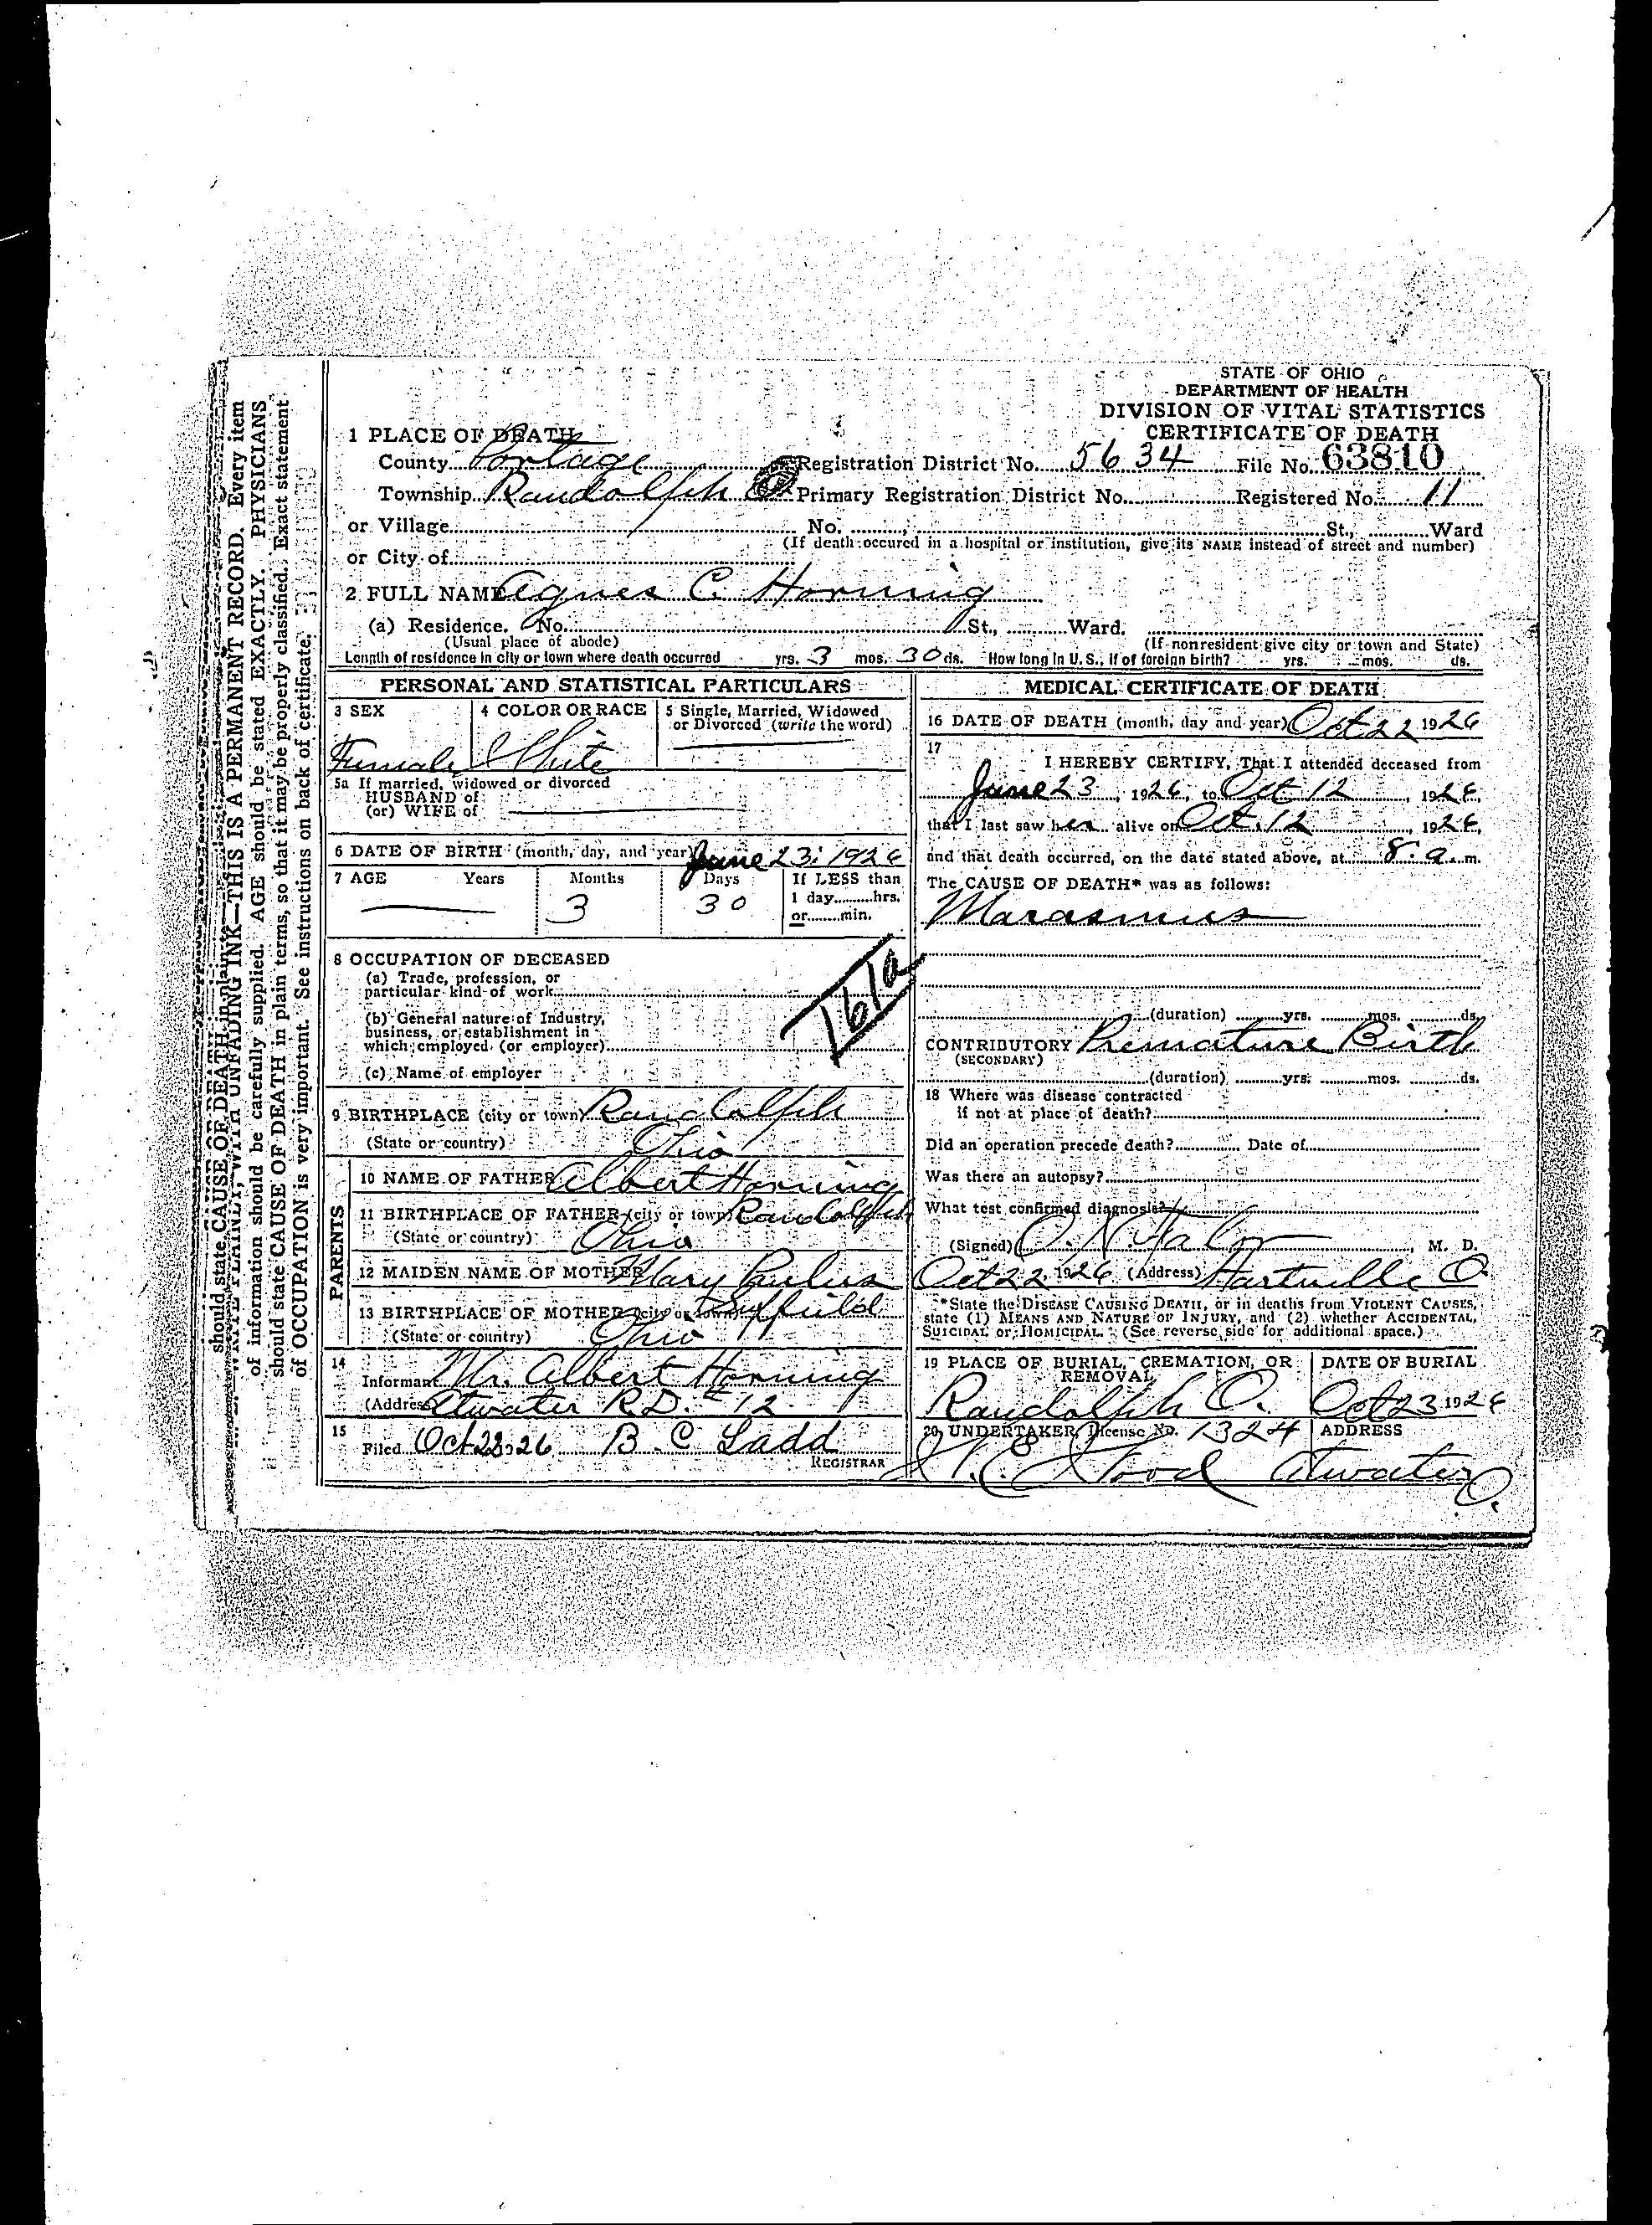 STATE OF OHIO
DEPARTMENT OF HEALTH
DIVISION OF VITAL STATISTICS
CERTIFICATE OF DEATH
1 PLACE OF DEATH
County Portage Registration District No. 5634 File No. 63810
Township Randolph Primary Registration District No. Registered No. 11
or Village No. St., Ward
(If death occured in a hospital or institution, give its NAME instead of street and number)
or City of
2 FULL NAME Agnes C. Horning
(a) Residence. No. St., Ward.
(Usual place of abode) (If nonresident give city or town and State)
Length of residence in city or town where death occurred yrs. 3 mos. 30 ds. How long in U. S., if of foreign birth? yrs. mos. ds.
PERSONAL AND STATISTICAL PARTICULARS
3 SEX 4 COLOR OR RACE 5 Single, Married, Widowed
or Divorced (write the word)
Female White
5a If married, widowed or divorced
HUSBAND of
(or) WIFE of
6 DATE OF BIRTH (month, day, and year) June 23, 1926
7 AGE Years Months Days If LESS than
1 day hrs.
3 30 or min.
8 OCCUPATION OF DECEASED
(a) Trade, profession, or
particular kind of work
(b) General nature of Industry,
business, or establishment in
which employed (or employer)
(c) Name of employer
161a
9 BIRTHPLACE (city or town) Randolph
(State or country) Ohio
PARENTS
10 NAME OF FATHER Albert Horning
11 BIRTHPLACE OF FATHER (city or town) Randolph
(State or country) Ohio
12 MAIDEN NAME OF MOTHER Mary Paulus
13 BIRTHPLACE OF MOTHER (city or town) Suffield
(State or country) Ohio
14
Informant Mr. Albert Horning
(Address) Atwater R.D. # 12
15
Filed Oct 23, 26 B. C. Ladd
REGISTRAR
MEDICAL CERTIFICATE OF DEATH
16 DATE OF DEATH (month, day and year) Oct 22 1926
17
I HEREBY CERTIFY, That I attended deceased from
June 23, 1926, to Oct 12, 1926,
that I last saw her alive on Oct. 12, 1926,
and that death occurred, on the date stated above, at 8. a. m.
The CAUSE OF DEATH* was as follows:
Marasmus
(duration) yrs. mos. ds.
CONTRIBUTORY Premature Birth
(SECONDARY)
(duration) yrs. mos. ds.
18 Where was disease contracted
if not at place of death?
Did an operation precede death? Date of
Was there an autopsy?
What test confirmed diagnosis?
(Signed) M. D.
Oct 22, 1926 (Address) Hartville O.
*State the DISEASE CAUSING DEATH, or in deaths from VIOLENT CAUSES,
state (1) MEANS AND NATURE OF INJURY, and (2) whether ACCIDENTAL,
SUICIDAL or HOMICIDAL. (See reverse side for additional space.)
19 PLACE OF BURIAL, CREMATION, OR REMOVAL DATE OF BURIAL
Randolph O. Oct 23 1926
20 UNDERTAKER, License No. 1324 ADDRESS
Atwater O.
WRITE PLAINLY, WITH UNFADING INK—THIS IS A PERMANENT RECORD. Every item
of information should be carefully supplied. AGE should be stated EXACTLY. PHYSICIANS
should state CAUSE OF DEATH in plain terms, so that it may be properly classified. Exact statement
of OCCUPATION is very important. See instructions on back of certificate.
should state CAUSE OF DEATH in plain